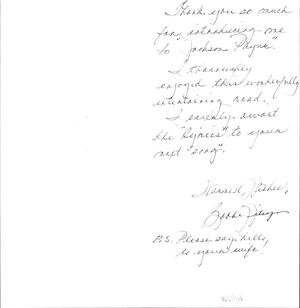 Thank you so much
for "introducing" me
to "Jackson Payne".
I thoroughly
enjoyed this wonderfully
entertaining read.
I eagerly await
the "lyrics" to your
next "song".
Warmest Wishes,
P.S. Please say hello
to your wife!